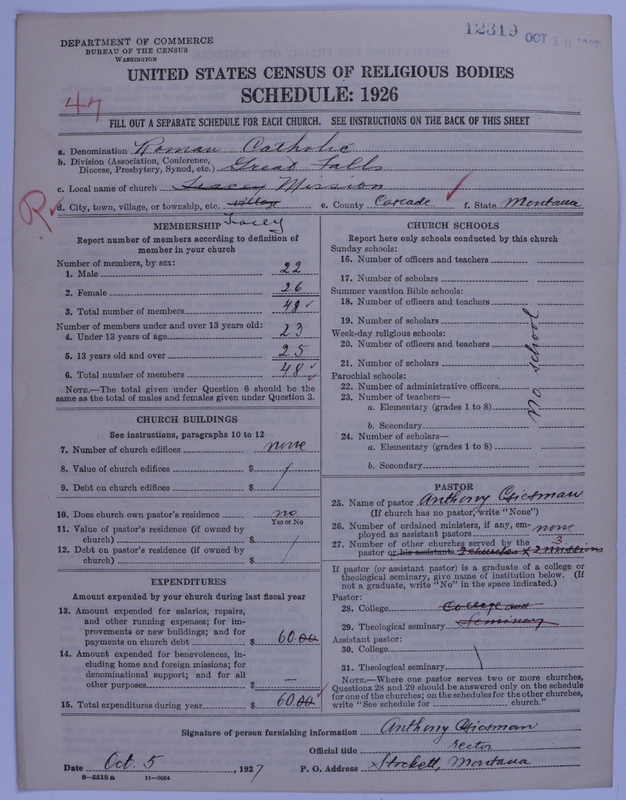 12319 OCT 10 1927
DEPARTMENT OF COMMERCE
BUREAU OF THE CENSUS
WASHINGTON
UNITED STATES CENSUS OF RELIGIOUS BODIES
SCHEDULE: 1926
47
FILL OUT A SEPARATE SCHEDULE FOR EACH CHURCH. SEE INSTRUCTIONS ON THE BACK OF THIS SHEET
a. Denomination Roman Catholic
b. Division (Association, Conference,
Diocese, Presbytery, Synod, etc.) Great Falls
c. Local name of church Tracey Mission
R d. City, town, village, or township, etc. village e. County Cascade f. State Montana
Tracey
MEMBERSHIP
Report number of members according to definition of
member in your church
Number of members, by sex:
1. Male 22
2. Female 26
3. Total number of members 48
Number of members under and over 13 years old:
4. Under 13 years of age 23
5. 13 years old and over 25
6. Total number of members 48
NOTE.—The total given under Question 6 should be the
same as the total of males and females given under Question 3.
CHURCH BUILDINGS
See instructions, paragraphs 10 to 12
7. Number of church edifices none
8. Value of church edifices $
9. Debt on church edifices $
10. Does church own pastor's residence no
Yes or No
11. Value of pastor's residence (if owned by
church) $
12. Debt on pastor's residence (if owned by
church) $
EXPENDITURES
Amount expended by your church during last fiscal year
13. Amount expended for salaries, repairs,
and other running expenses; for im-
provements or new buildings; and for
payments on church debt $ 60.00
14. Amount expended for benevolences, in-
cluding home and foreign missions; for
denominational support; and for all
other purposes $ —
15. Total expenditures during year $ 60.00
CHURCH SCHOOLS
Report here only schools conducted by this church
Sunday schools:
16. Number of officers and teachers
17. Number of scholars
Summer vacation Bible schools:
18. Number of officers and teachers
19. Number of scholars
Week-day religious schools:
20. Number of officers and teachers
21. Number of scholars
Parochial schools:
22. Number of administrative officers
23. Number of teachers—
a. Elementary (grades 1 to 8)
b. Secondary
24. Number of scholars—
a. Elementary (grades 1 to 8)
b. Secondary
No school
PASTOR
25. Name of pastor Anthony Giesman
(If church has no pastor, write "None")
26. Number of ordained ministers, if any, em-
ployed as assistant pastors none
27. Number of other churches served by the 3
pastor or his assistants 2 churches & 2 missions
If pastor (or assistant pastor) is a graduate of a college or
theological seminary, give name of institution below. (If
not a graduate, write "No" in the space indicated.)
Pastor:
28. College College and
29. Theological seminary Seminary
Assistant pastor:
30. College
31. Theological seminary
NOTE.—Where one pastor serves two or more churches,
Questions 28 and 29 should be answered only on the schedule
for one of the churches; on the schedules for the other churches,
write "See schedule for church."
Signature of person furnishing information Anthony Giesman
Official title rector
Date Oct. 5, 1927 P. O. Address Stockett, Montana
8—5518a 11—9034